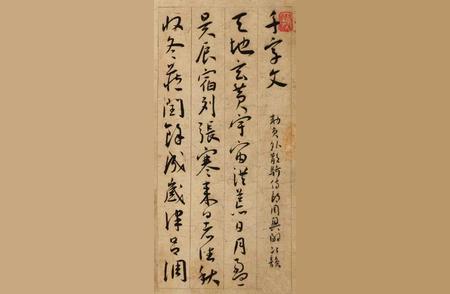 千字文
勅員外散騎侍郎周興嗣次韻
天地玄黄宇宙洪荒日月盈
昃辰宿列張寒来暑往秋
收冬藏閏餘成歲律呂調